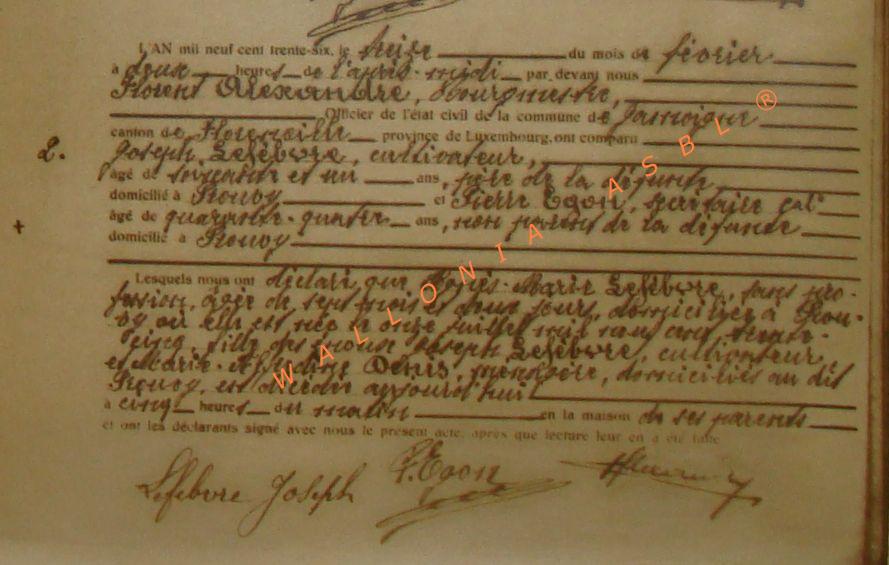 L'AN mil neuf cent trente-six, le treize du mois de février
à deux heures de l'après-midi par devant nous
Florent Alexandre, bourgmestre,
Officier de l'état civil de la commune de Jamoigne
canton de Florenville province de Luxembourg, ont comparu
2. Joseph Lefèbvre, cultivateur,
âgé de cinquante et un ans, père de la défunte,
domicilié à Prouvy et Pierre Egon, secrétaire cal
âgé de quarante-quatre ans, non parent de la défunte
domicilié à Prouvy
Lesquels nous ont déclaré que Marie Lefèbvre, sans pro-
fession, âgée de sept mois et deux jours, domiciliée à Prou-
vy où elle est née le onze juillet mil neuf cent trente-
cinq, fille des époux Joseph Lefèbvre, cultivateur
et Marie Denis, ménagère, domiciliés au dit
Prouvy, est décédée aujourd'hui
à cinq heures du matin en la maison de ses parents
et ont les déclarants signé avec nous le présent acte, après que lecture leur en a été faite
Lefebvre Joseph P. Egon
WALLONIA ASBL ®